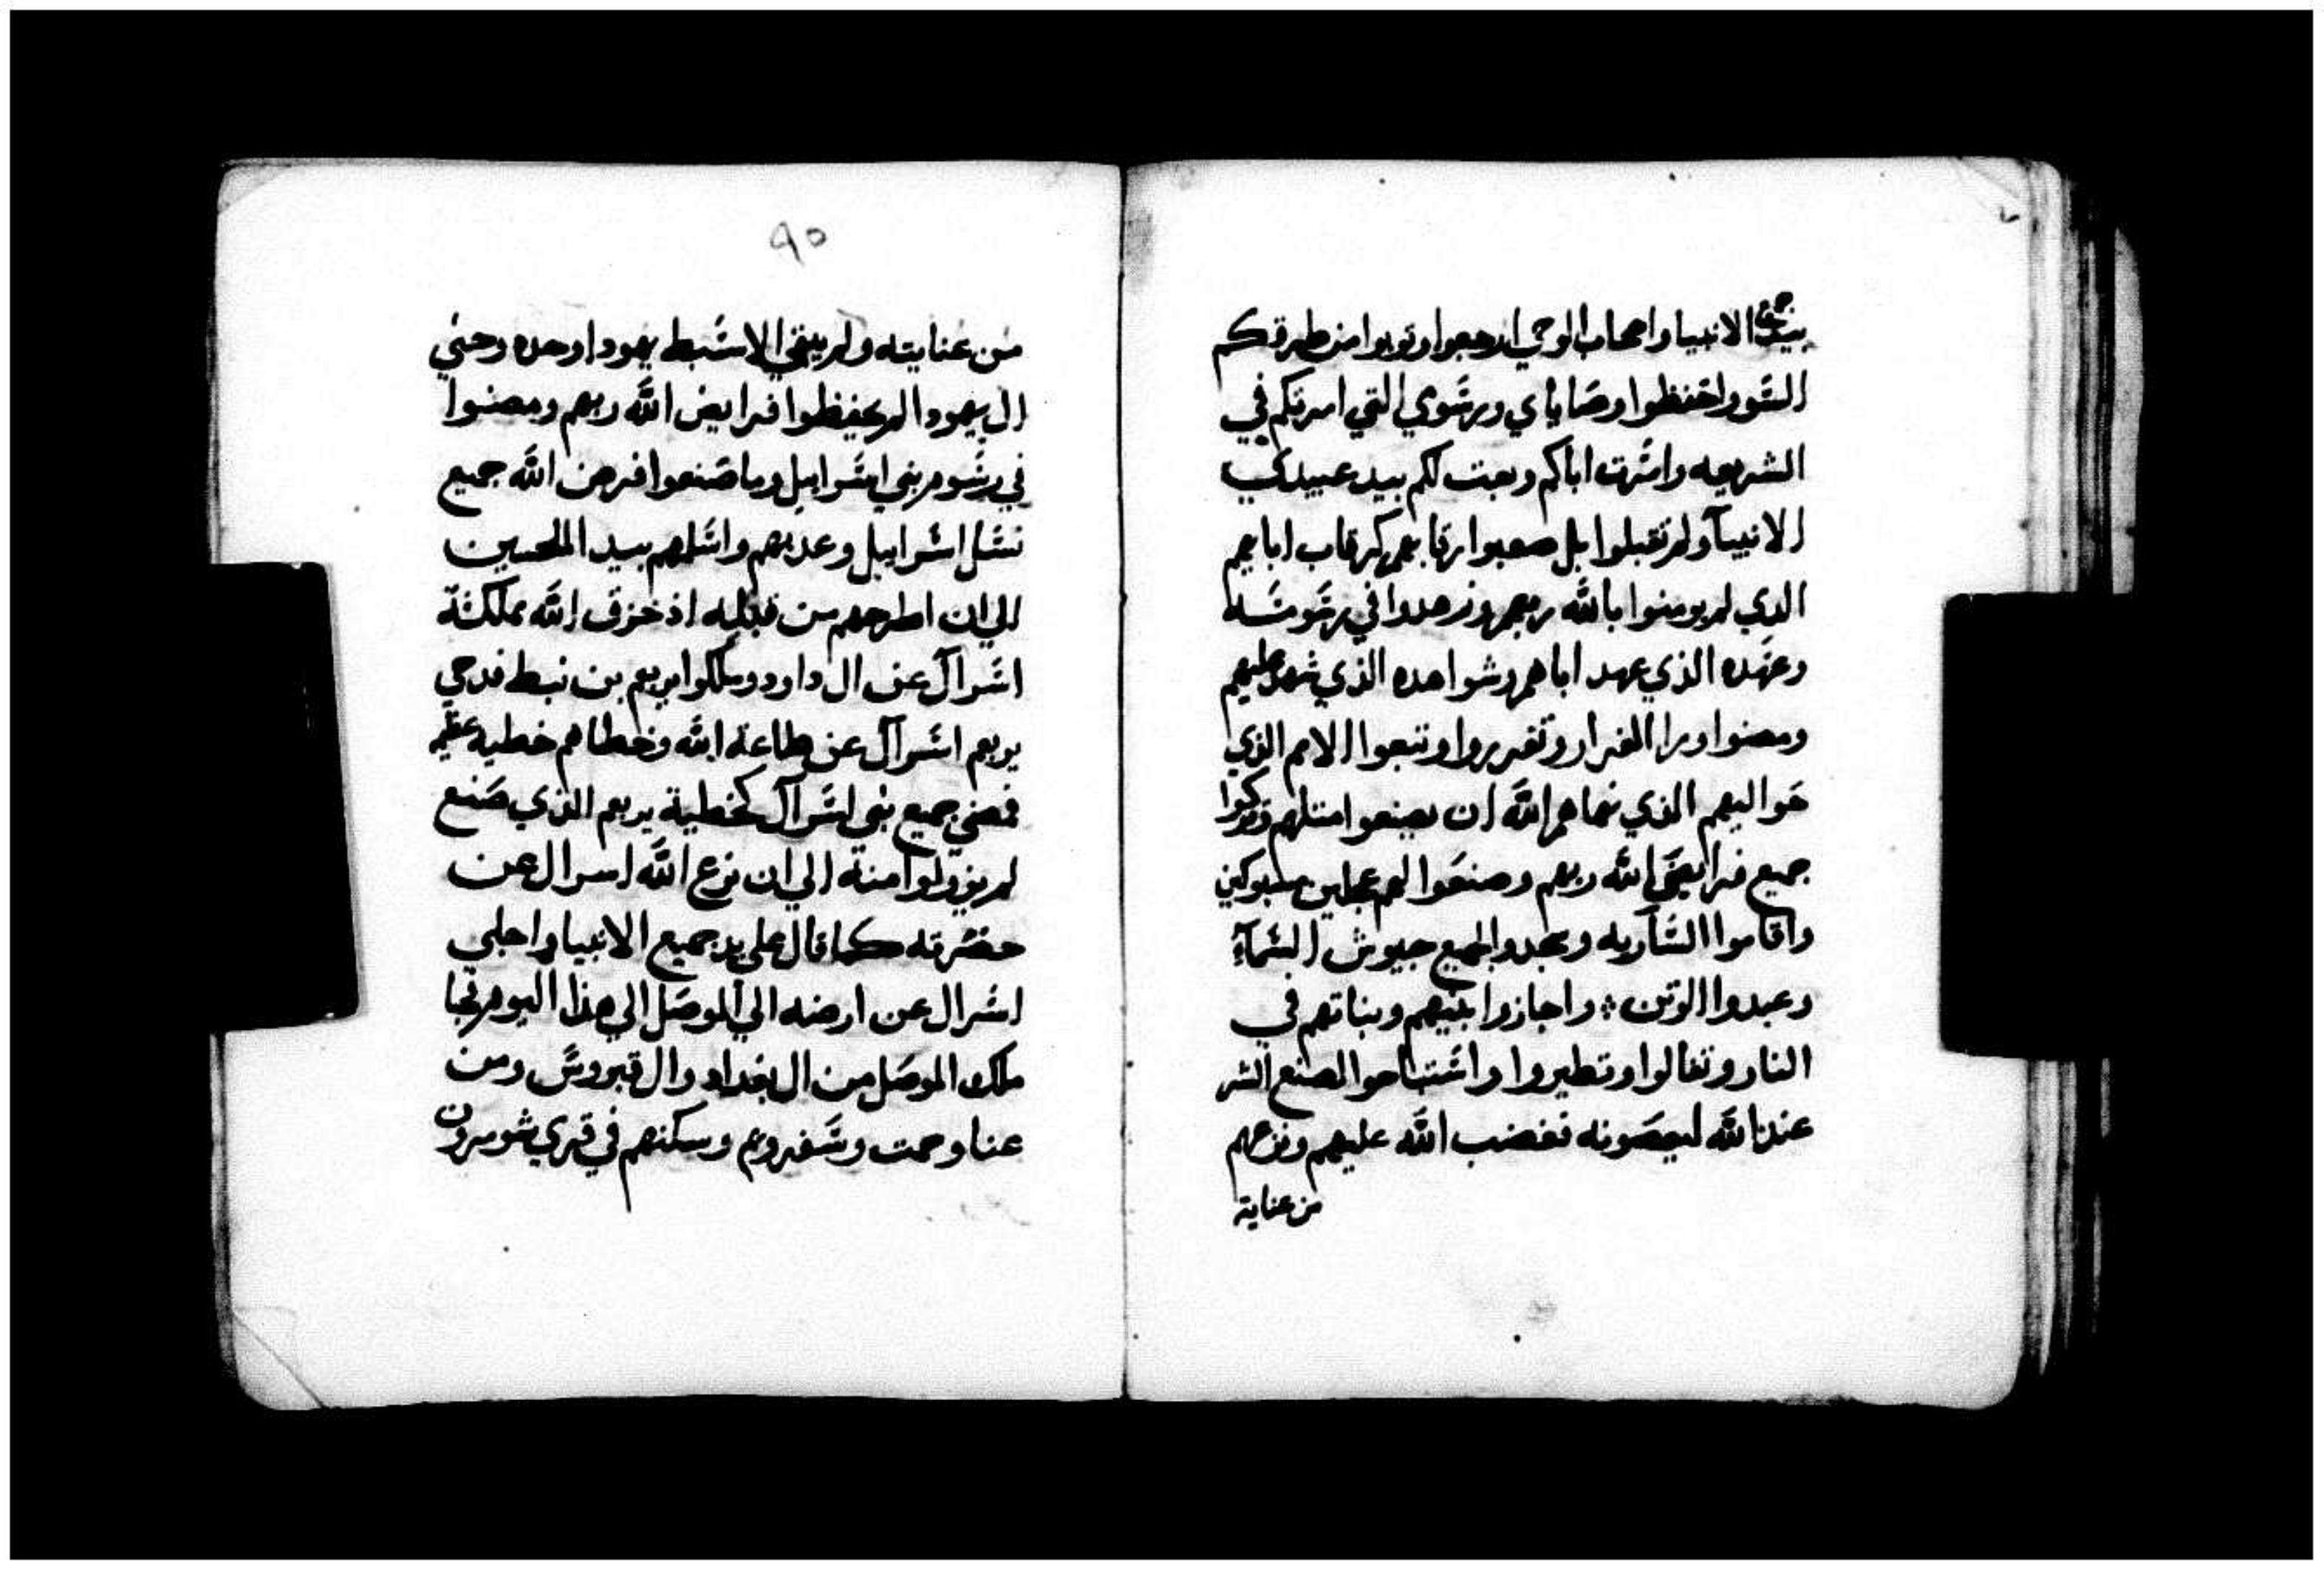 بيد جميع الانبيا واصحاب الوحي ارجعوا وتوبوا من طرقكم
السو واحفظوا وصاياي ورسومي التي امرتكم في
الشريعه وامرت اباكم وبعتت لكم بيد عبيدي
الانبيا ولم تقبلوا بل صعبوا رقابهم كرقاب اباهم
الذي لم يومنوا بالله ربهم وزهدوا في رسومه
وعهده الذي عهد اباهم وشواهده الذي شهد عليهم
ومضوا ورا الغرار وتغرروا وتبعوا الامم الذي
حواليهم الذي نهاهم الله ان يصنعوا امتلهم وتركوا
جميع فرايض الله ربهم وصنعوا لهم عجلين مسبوكين
واقاموا السآريه وسجدوا لجميع جيوش السمآء
وعبدوا الوتن ۞ واجازوا بنيهم وبناتهم في
النار وتفالوا وتطيروا واستباحوا لصنع الشر
عند الله ليعصونه فغضب الله عليهم ونزعهم
من عناية
٩٠
من عنايته ولم يبقي الا سبط يهودا وحده وحتي
ال يهودا لم يحفظوا فرايض الله ربهم ومضوا
في رسوم بني اسراييل وما صنعوا فرفض الله جميع
نسل اسراييل وعدبهم واسلمهم بيد
الي ان اطرحهم من قبله اذ خزق الله مملكة
اسرال عن ال داود وملكوا يربعم بن نبط فدحي
يربعم اسرال عن طاعة الله وخطاهم خطيه عظيمه
فمضي جميع بني اسرال كخطية يربعم الذي صنع
لم يزولوا منه الي ان نزع الله اسرال عن
حضرته كما قال على يد جميع الانبيا واجلي
اسرال عن ارضه الي الموصل الي هذا اليوم فجا
ملك الموصل من ال بغداد وال قبروس ومن
عنا وحمت وسفروم وسكنهم في قري شومرون